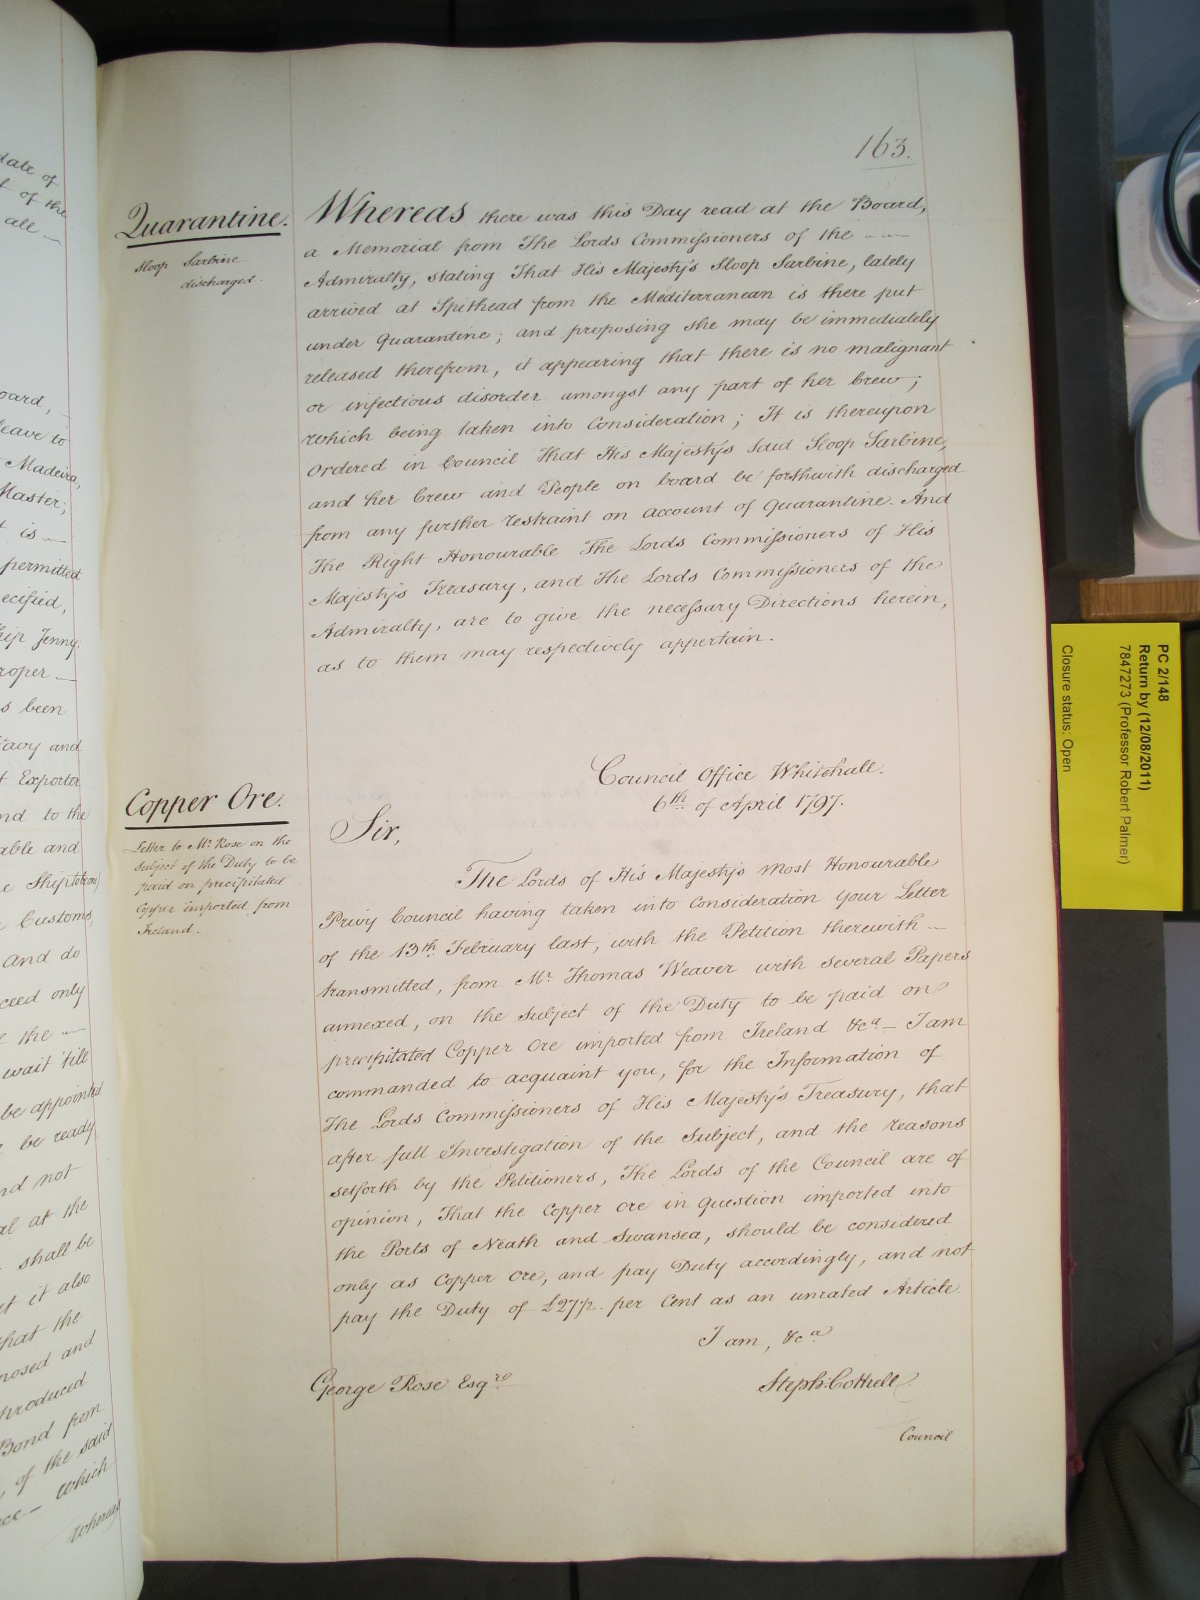 date of
t of the
all
oard,
leave to
Madeira,
Master;
t is
permitted
ecified,
hip Jenny.
roper
s been
avy and
t Exporter
nd to the
able and
e Ship
Customs,
and do
ceed only
the
wait 'till
be appointed
be ready
nd not
al at the
shall be
it also
that the
nosed and
hroduced
Bond from
of the said
which
Whereas
163.
Quarantine.
Sloop Sarbine
discharged.
Whereas there was this Day read at the Board,
a Memorial from The Lords Commissioners of the
Admiralty, stating That His Majesty's Sloop Sarbine, lately
arrived at Spithead from the Mediterranean is there put
under Quarantine; and proposing she may be immediately
released therefrom, it appearing that there is no malignant
or infectious disorder amongst any part of her Crew;
which being taken into Consideration; It is thereupon
Ordered in Council That His Majesty's said Sloop Sarbine,
and her Crew and People on board be forthwith discharged
from any further restraint on account of Quarantine. And
The Right Honourable The Lords Commissioners of His
Majesty's Treasury, and The Lords Commissioners of the
Admiralty, are to give the necessary Directions herein,
as to them may respectively appertain.
Council Office Whitehall.
6th. of April 1797.
Copper Ore.
Letter to Mr. Rose on the
subject of the Duty to be
paid on precipitated
Copper imported from
Ireland.
Sir,
The Lords of His Majesty's Most Honourable
Privy Council having taken into Consideration your Letter
of the 13th. February last, with the Petition therewith
transmitted, from Mr. Thomas Weaver with several Papers
annexed, on the subject of the Duty to be paid on
precipitated Copper Ore imported from Ireland &ca. I am
commanded to acquaint you, for the Information of
The Lords Commissioners of His Majesty's Treasury, that
after full Investigation of the Subject, and the reasons
setforth by the Petitioners, The Lords of the Council are of
opinion, That the Copper Ore in question imported into
the Ports of Neath and Swansea, should be considered
only as Copper Ore, and pay Duty accordingly, and not
pay the Duty of £27½. per Cent as an unrated Article.
I am, &ca.
George Rose Esqre.
Steph: Cottrell
Council
PC 2/148
Return by (12/08/2011)
7847273 (Professor Robert Palmer)
Closure status: Open